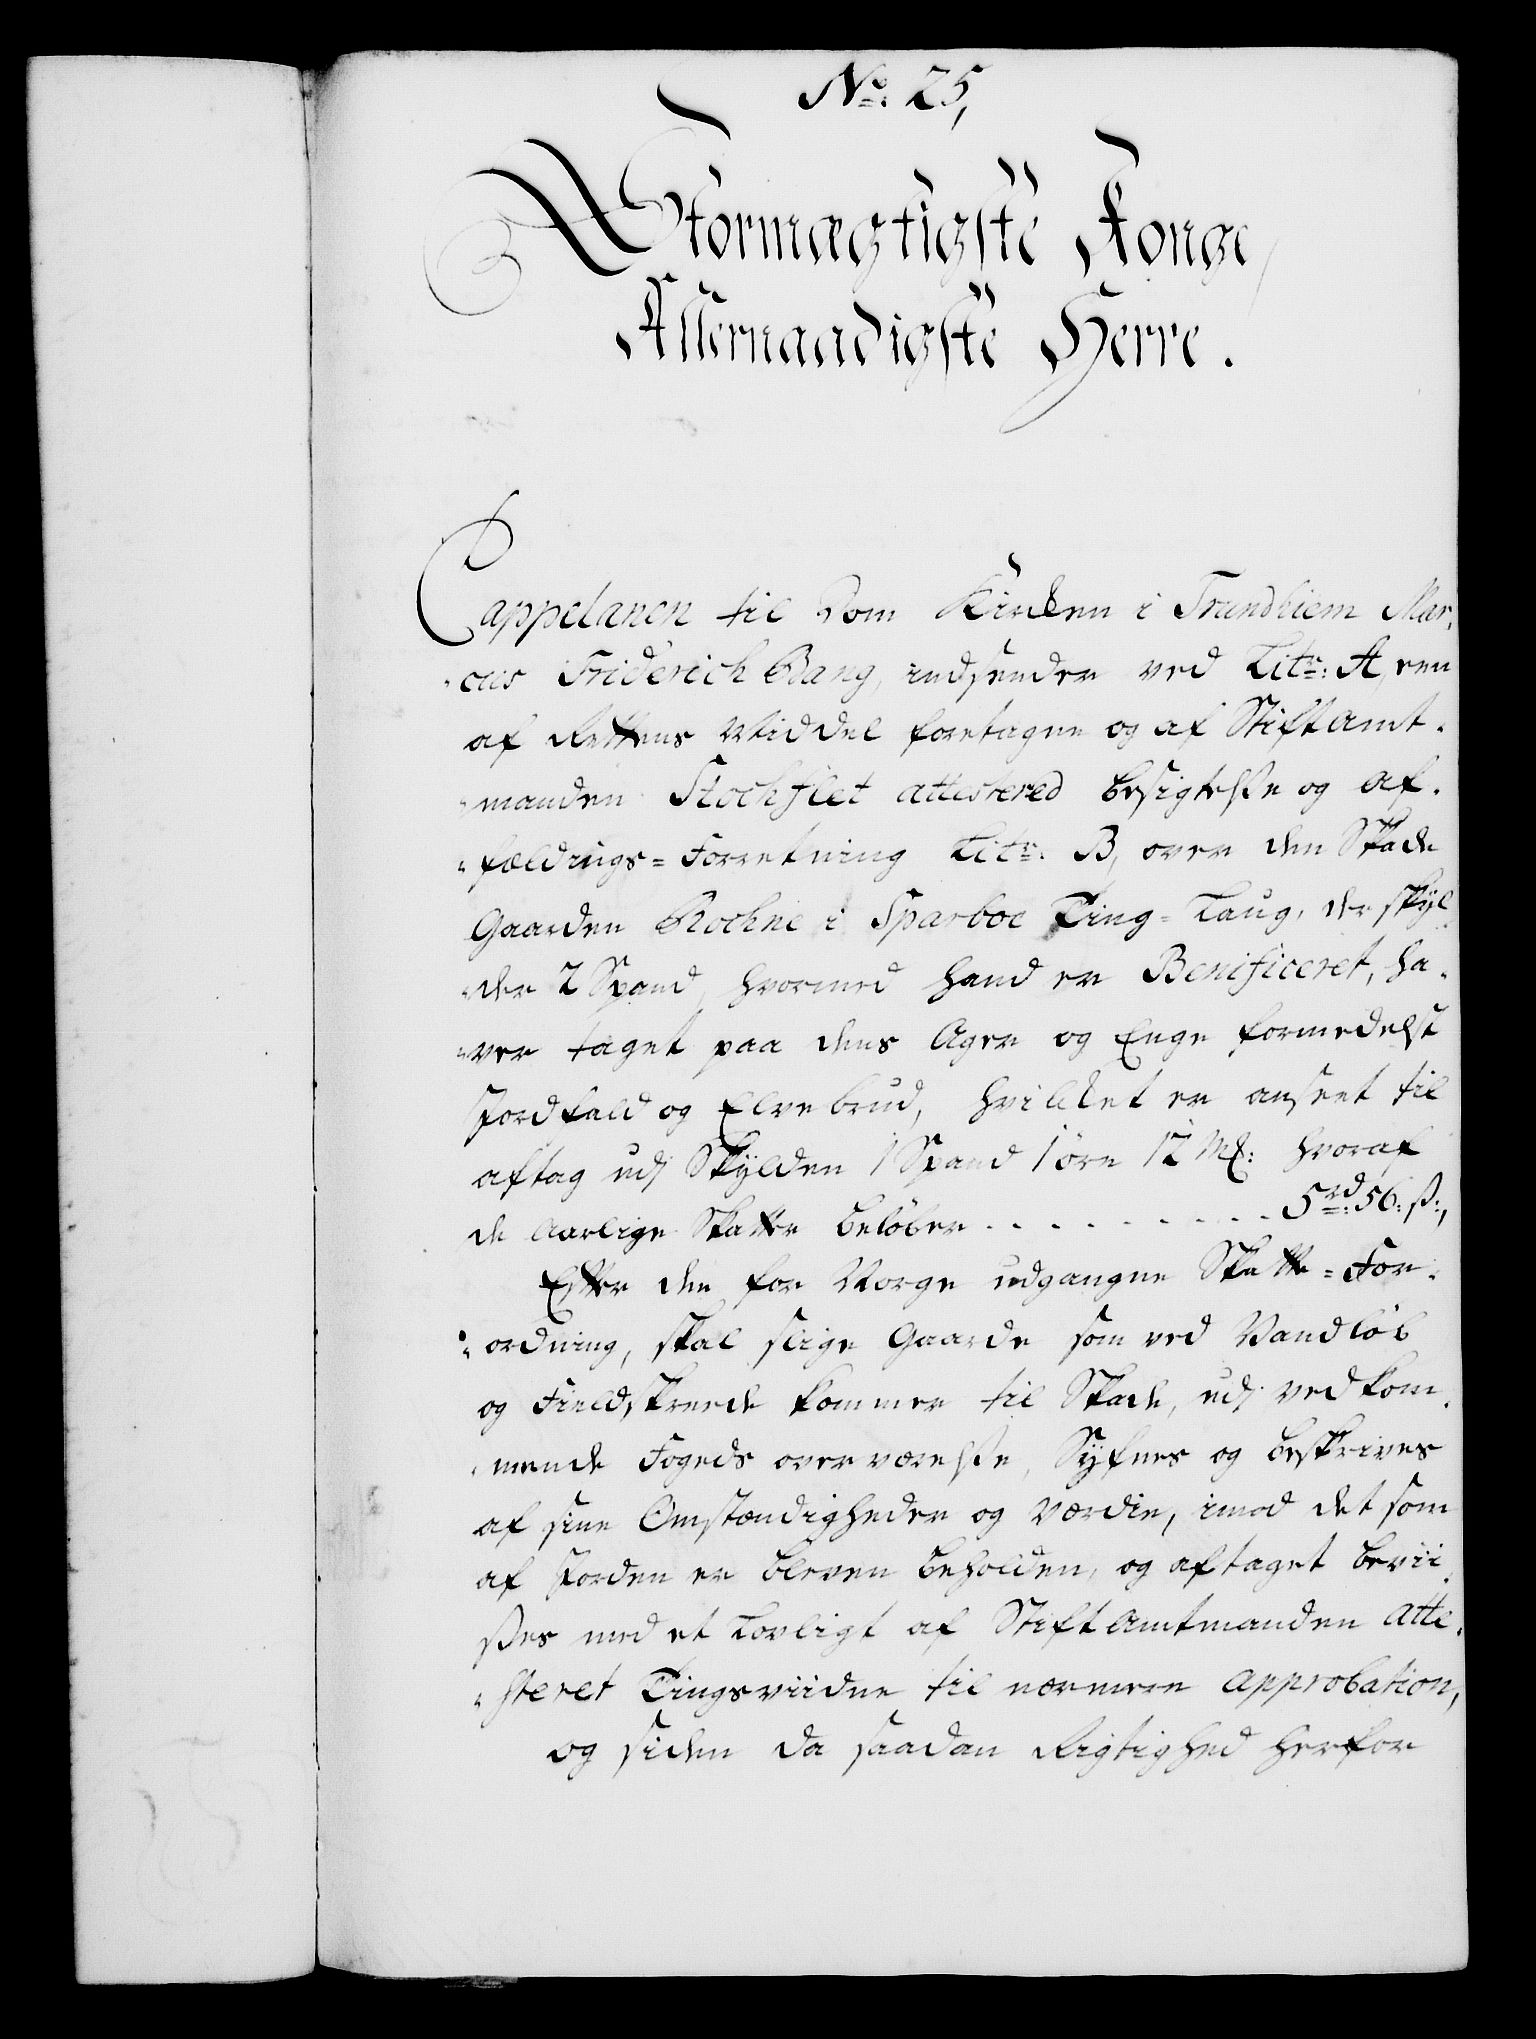 No: 25,
Stormægtigste Konge
Allernaadigste Herre.
Cappelanen til Dom Kirken i Trundhiem Mar,
"cus Friderich Bang, indsender ved Litr: A, een
af Rettens Middel foretagne og af Stiftamt-
"manden Stochflet attestered besigtelsse og af-
"fældings-Forretning Litr: B, over den Skade
Gaarden Rochne i Sparboe Ting-Laug, der skyl-
"der 2 Spand, hvormed hand er Benificeret, ha-
"ver taget paa dens Ager og Enge formedelst
Jordfald og Elvebrud, hvilket er anseet til
aftag udj Skylden 1 Spand 1 øre 12 Mk: hvoraf
de Aarlige Skatter beløber . . . . . . . . . 5rd: 56: s:,
Efter den for Norge udgangne Skatte-For-
"ordning, skal slige Gaarde som ved Vandløb
og Fieldskreede kommer til Skade, udj vedkom-
"mende Fogeds overværelsse, Syfnes og beskrives
af sine Omstændigheder og Værdie, imod det som
af Jorden er bleven beholden, og aftaget bevii-
sses med et Lovligt af Stiftamtmanden Atte-
"steret Tingsviidne til nærmere Approbation,
og siden da saadan Rigtighed herfor